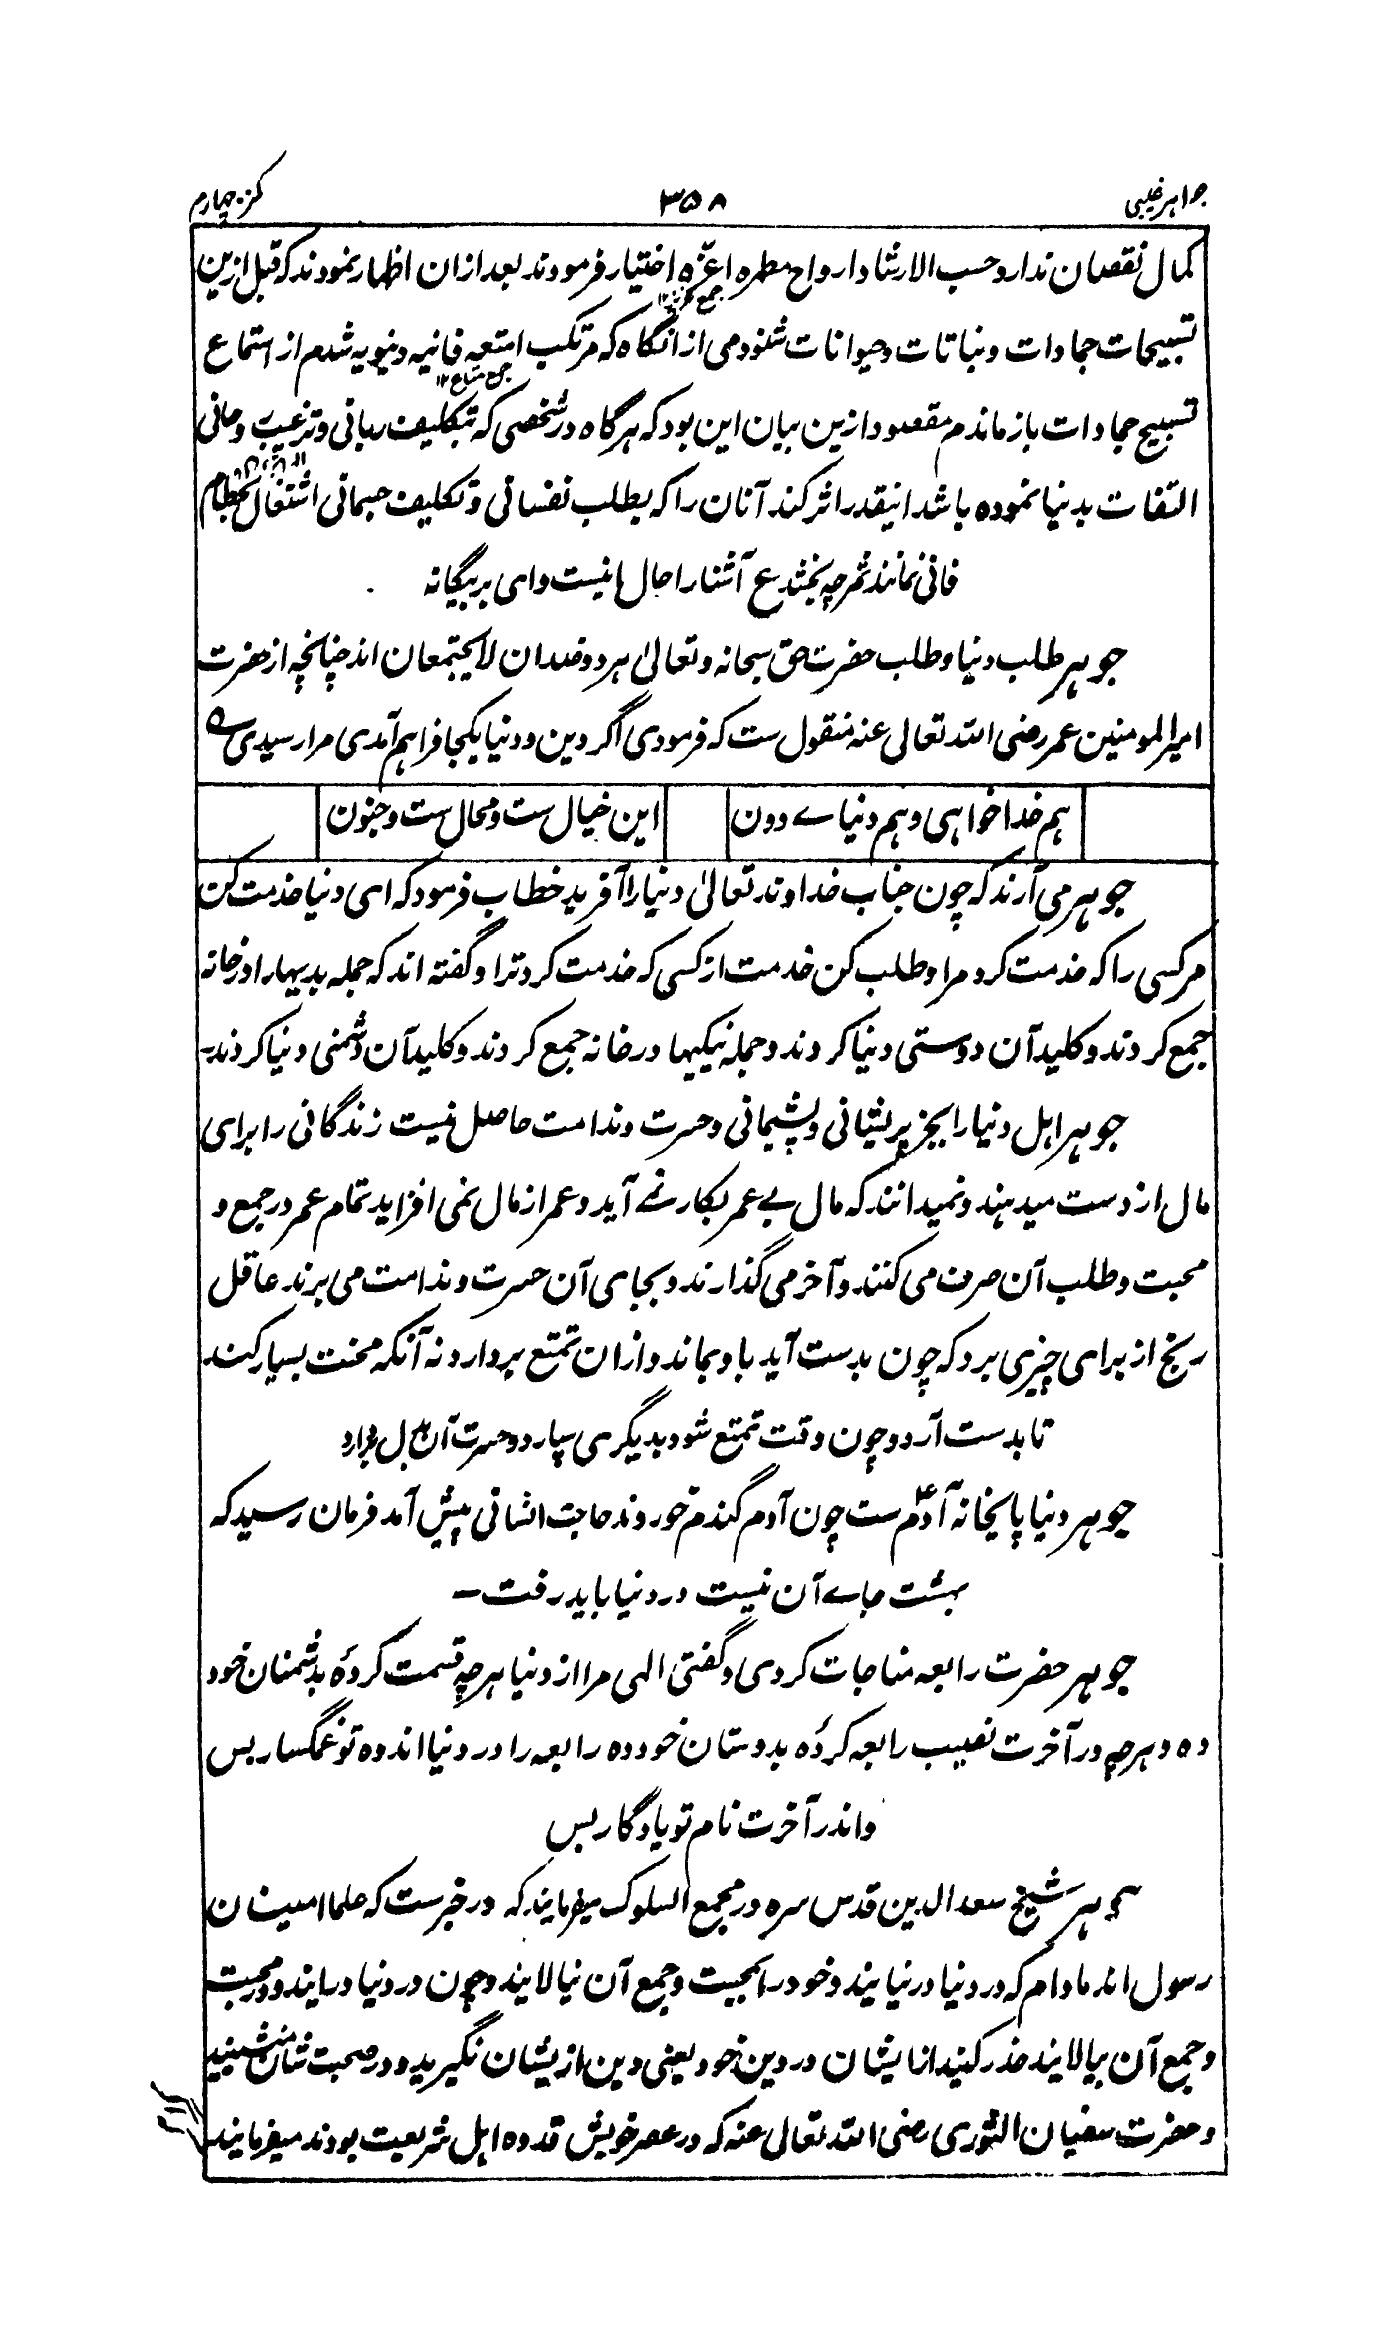 جواهر غیبی ۳۵۸ کنز چهارم
کمال نقصان ندارد حسب الارشاد ارواح مطهره اعزه اختیار فرمودند بعد ازان اظهار نمودند که قبل ازین
جمع عزیز ۱۲
تسبیحات جمادات و نباتات و حیوانات شنودمی از انگاه که مرتکب امتعه فانیه دنیویه شدم از استماع
جمع متاع ۱۲
تسبیح جمادات باز ماندم مقصود ازین بیان این بود که هرگاه در شخصی که بتکلیف ربانی و ترغیب روحانی
التفات بدنیا نموده باشد اینقدر اثر کند آنان را که بطلب نفسانی و تکلیف جسمانی اشتغال بحطام
فانی نمانند ثمر چه بخشد ع آشنا را حال اینست وای بر بیگانه
جوهر طلب دنیا و طلب حضرت حق سبحانه و تعالیٰ هر دو ضدان لا یجتمعان اند چنانچه از حضرت
امیر المومنین عمر رضی الله تعالی عنه منقول ست که فرمودی اگر دین و دنیا یکجا فراهم آمدی مرا رسیدی ه
هم خدا خواهی و هم دنیاے دون این خیال ست و محال ست و جنون
جوهر می آرند که چون جناب خداوند تعالیٰ دنیا را آفرید خطاب فرمود که ای دنیا خدمت کن
هر کسی را که خدمت کرد مرا و طلب کن خدمت از کسی که خدمت کرد ترا و گفته اند که جمله بدیها را در خانه
جمع کردند و کلید آن دوستی دنیا کردند و جمله نیکیها در خانه جمع کردند و کلید آن دشمنی دنیا کردند۔
جوهر اهل دنیا را بجز پریشانی و پشیمانی و حسرت و ندامت حاصل نیست زندگانی را برای
مال از دست میدهند و نمیدانند که مال بے عمر بکار نمے آید و عمر از مال نمی افزاید تمام عمر در جمع و
محبت و طلب آن صرف می کنند و آخر می گذارند و بجای آن حسرت و ندامت می برند عاقل
رنج از برای چیزی برد که چون بدست آید با و بماند و ازان تمتع بردارد نه آنکه محنت بسیار کند
تا بدست آرد و چون وقت تمتع شود بدیگری سپارد و حسرت آن بدل بردارد
جوهر دنیا پایخانه آدمؑ ست چون آدم گندم خوردند حاجت انسانی پیش آمد فرمان رسید که
بهشت جاے آن نیست در دنیا باید رفت —
جوهر حضرت رابعه مناجات کردی و گفتی الهی مرا از دنیا هرچه قسمت کردۀ بدشمنان خود
ده و هرچه در آخرت نصیب رابعه کردۀ بدوستان خود ده رابعه را در دنیا اندوه تو غمگسار بس
و اندر آخرت نام تو یادگار بس
جوهر شیخ سعد الدین قدس سره در مجمع السلوک میفرمایند که در خبرست که علما امینان
رسول اند مادام که در دنیا در نیایند و خود را بمحبت و جمع آن نیالایند و چون در دنیا درایند و در محبت
و جمع آن بیالایند حذر کنید از ایشان در دین خود یعنی دین از یشان نگیرید و در صحبت شان منشینید
و حضرت سفیان الثوری رضی الله تعالی عنه که در عصر خویش قدوه اهل شریعت بودند میفرمایند